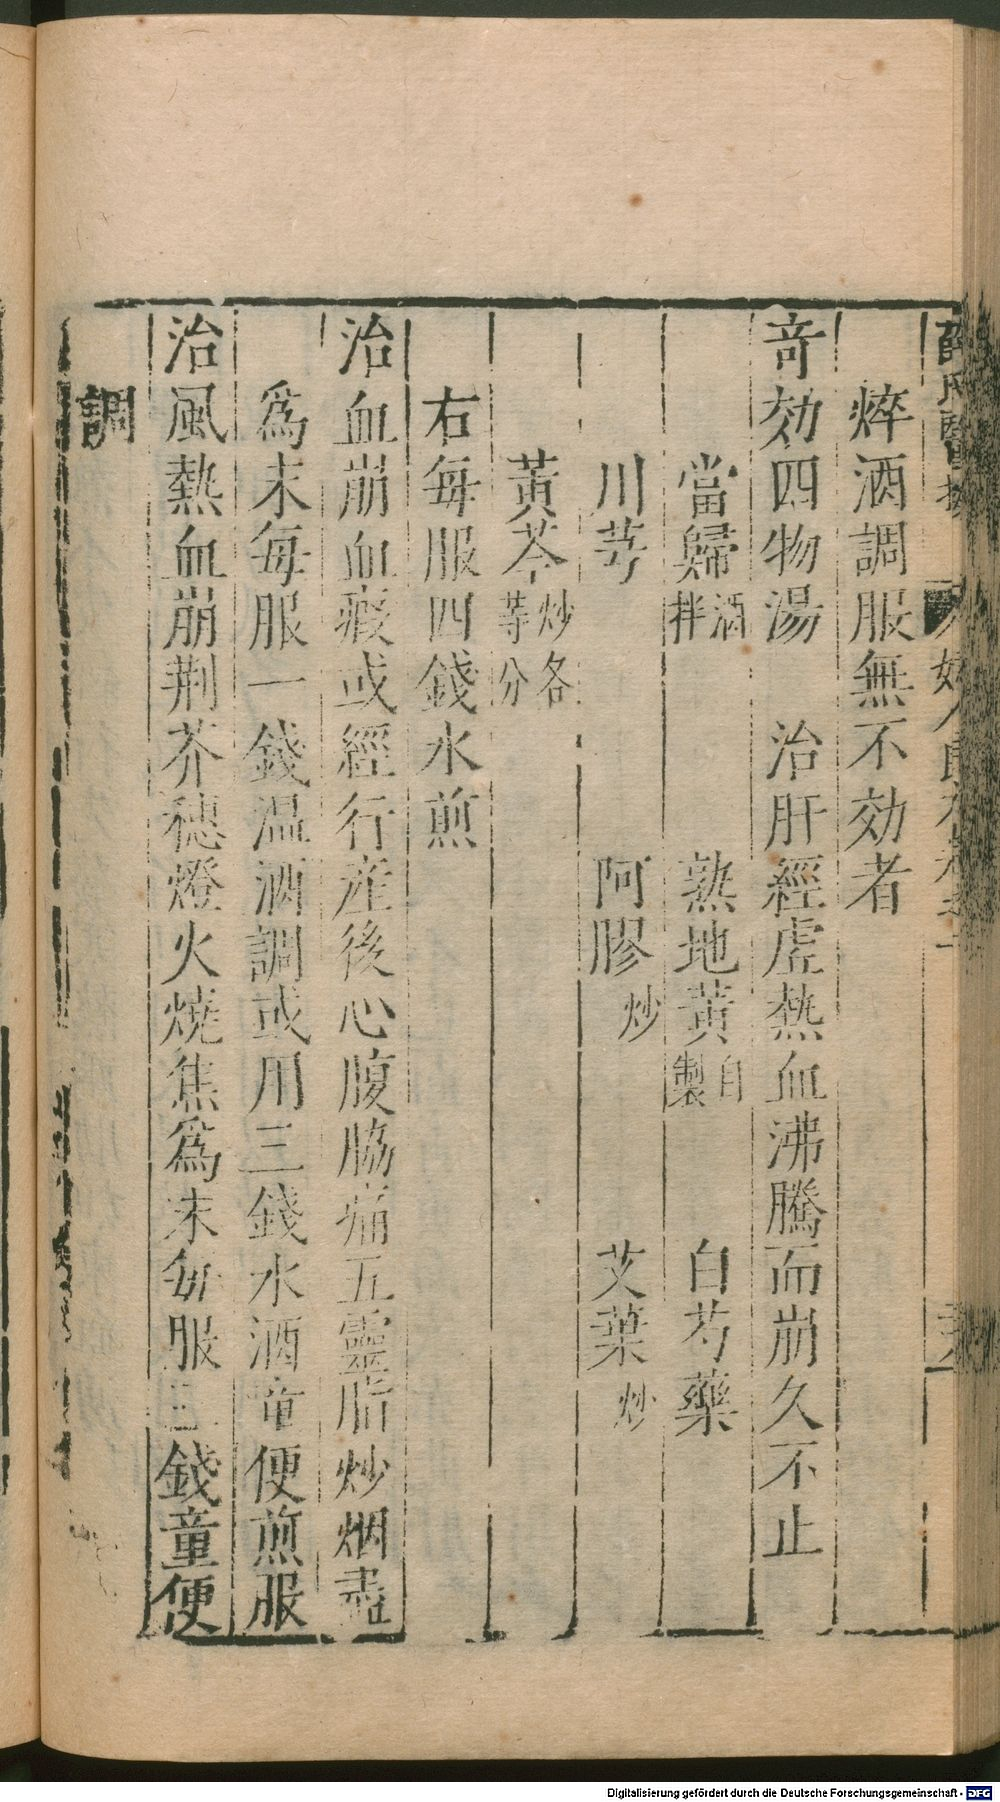 焠酒調服無不効者
奇効四物湯　治肝經虛熱血沸騰而崩久不止
當歸酒拌　熟地黃自製　白芍藥
川芎　阿膠炒　艾葉炒
黃芩炒各等分
右每服四錢水煎
治血崩血瘕或經行產後心腹脇痛五靈脂炒烟盡
爲末每服一錢温酒調或用三錢水酒童便煎服
治風熱血崩荆芥穗燈火燒焦爲末每服三錢童便
調
Digitalisierung gefördert durch die Deutsche Forschungsgemeinschaft - DFG